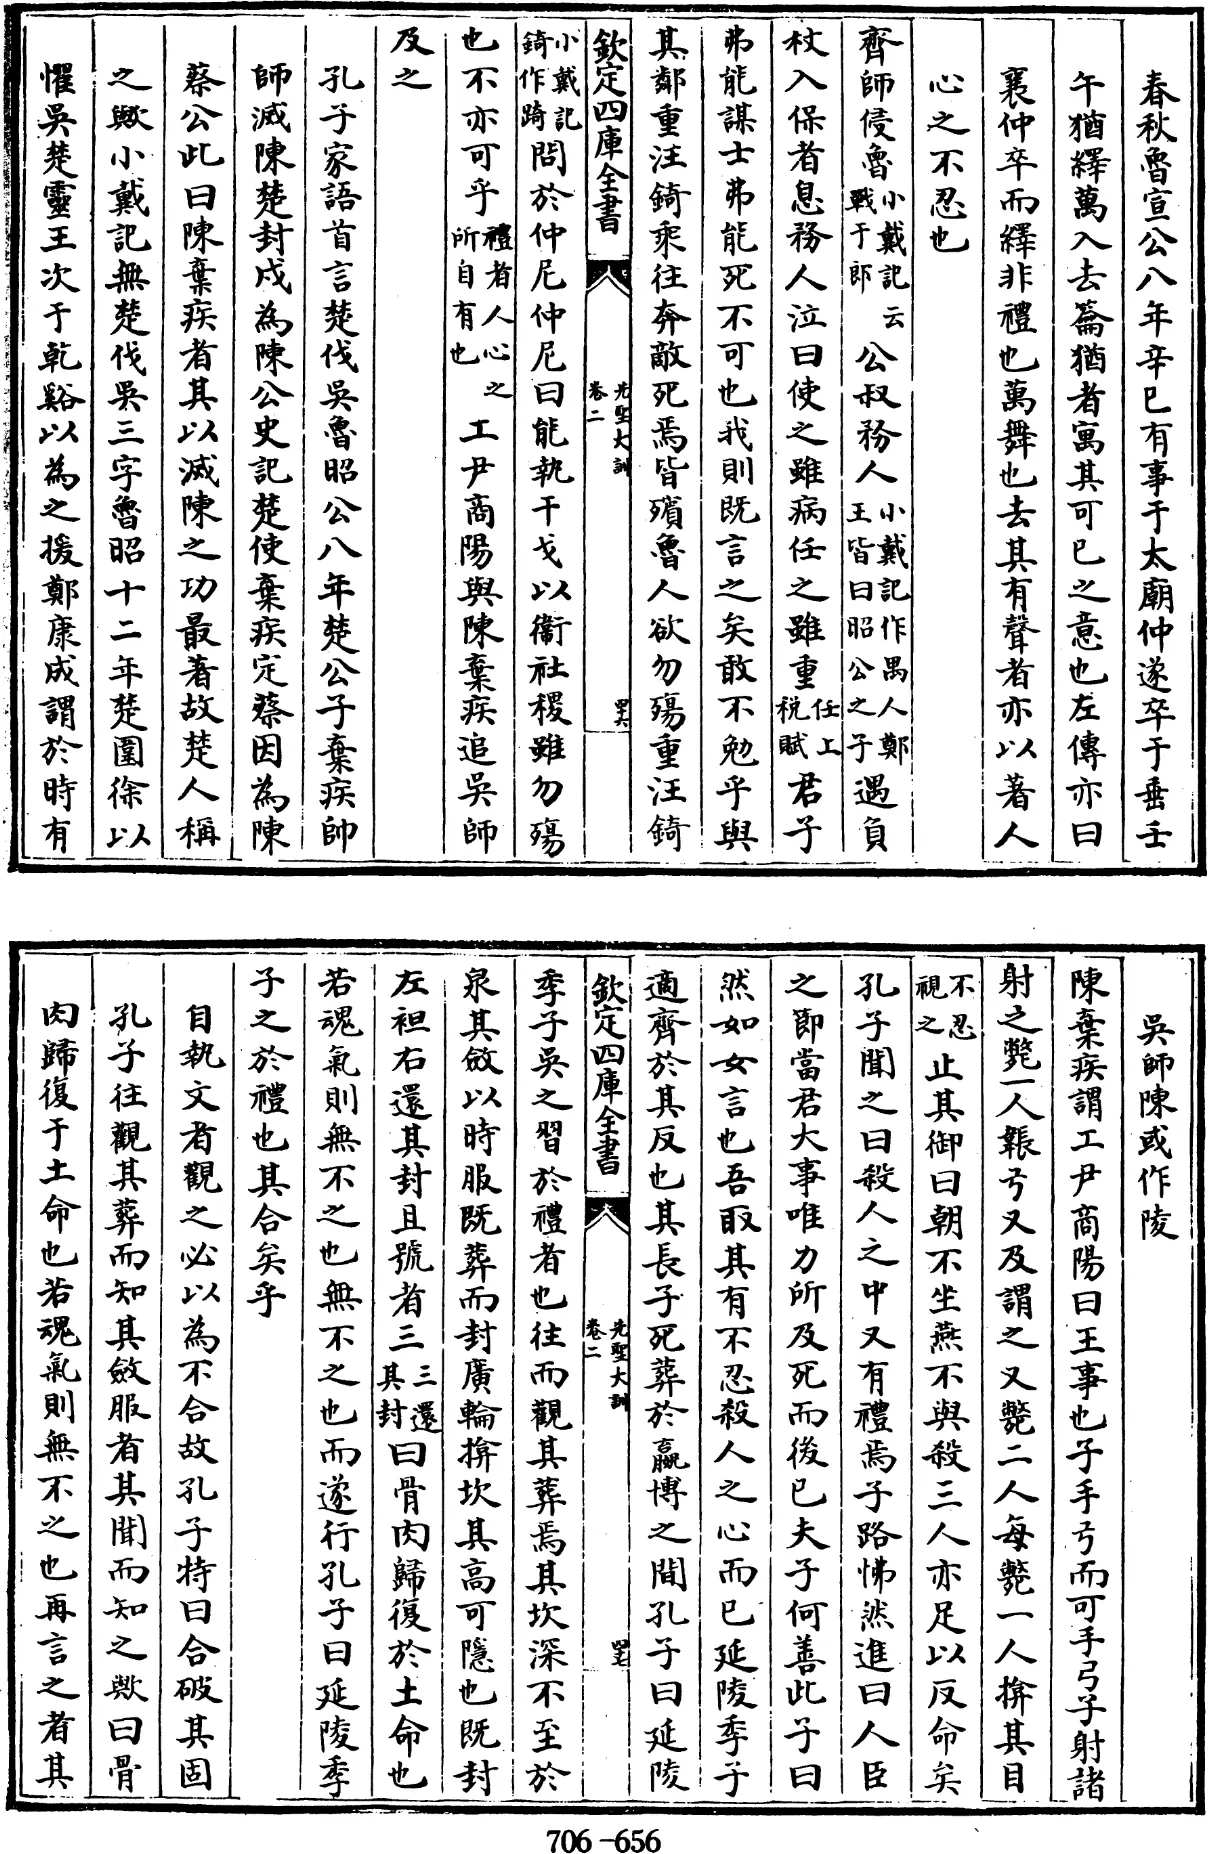 春秋魯宣公八年辛巳有事于太廟仲遂卒于垂壬
午猶繹萬入去籥猶者寓其可已之意也左傳亦曰
襄仲卒而繹非禮也萬舞也去其有聲者亦以著人
心之不忍也
齊師侵魯小戴記云戰于郎公叔務人小戴記作禺人鄭王皆曰昭公之子遇負
杖入保者息務人泣曰使之雖病任之雖重任上稅賦君子
弗能謀士弗能死不可也我則既言之矣敢不勉乎與
其鄰重汪錡乘往奔敵死焉皆殯魯人欲勿殤重汪錡
欽定四庫全書 先聖大訓 卷二 四十六
小戴記錡作踦問於仲尼仲尼曰能執干戈以衞社稷雖勿殤
也不亦可乎禮者人心之所自有也工尹商陽與陳棄疾追吳師
及之
孔子家語首言楚伐吳魯昭公八年楚公子棄疾帥
師滅陳楚封戍為陳公史記楚使棄疾定蔡因為陳
蔡公此曰陳棄疾者其以滅陳之功最著故楚人稱
之歟小戴記無楚伐吳三字魯昭十二年楚圍徐以
懼吳楚靈王次于乾谿以為之援鄭康成謂於時有
吳師陳或作陵
陳棄疾謂工尹商陽曰王事也子手弓而可手弓子射諸
射之斃一人韔弓又及謂之又斃二人每斃一人揜其目
不忍視之止其御曰朝不坐燕不與殺三人亦足以反命矣
孔子聞之曰殺人之中又有禮焉子路怫然進曰人臣
之節當君大事唯力所及死而後已夫子何善此子曰
然如女言也吾取其有不忍殺人之心而已延陵季子
適齊於其反也其長子死葬於嬴博之間孔子曰延陵
欽定四庫全書 先聖大訓 卷二 四十七
季子吳之習於禮者也往而觀其葬焉其坎深不至於
泉其斂以時服既葬而封廣輪揜坎其高可隱也既封
左袒右還其封且號者三三還其封曰骨肉歸復於土命也
若魂氣則無不之也無不之也而遂行孔子曰延陵季
子之於禮也其合矣乎
自執文者觀之必以為不合故孔子特曰合破其固
孔子往觀其葬而知其斂服者其聞而知之歟曰骨
肉歸復于土命也若魂氣則無不之也再言之者其
706-656